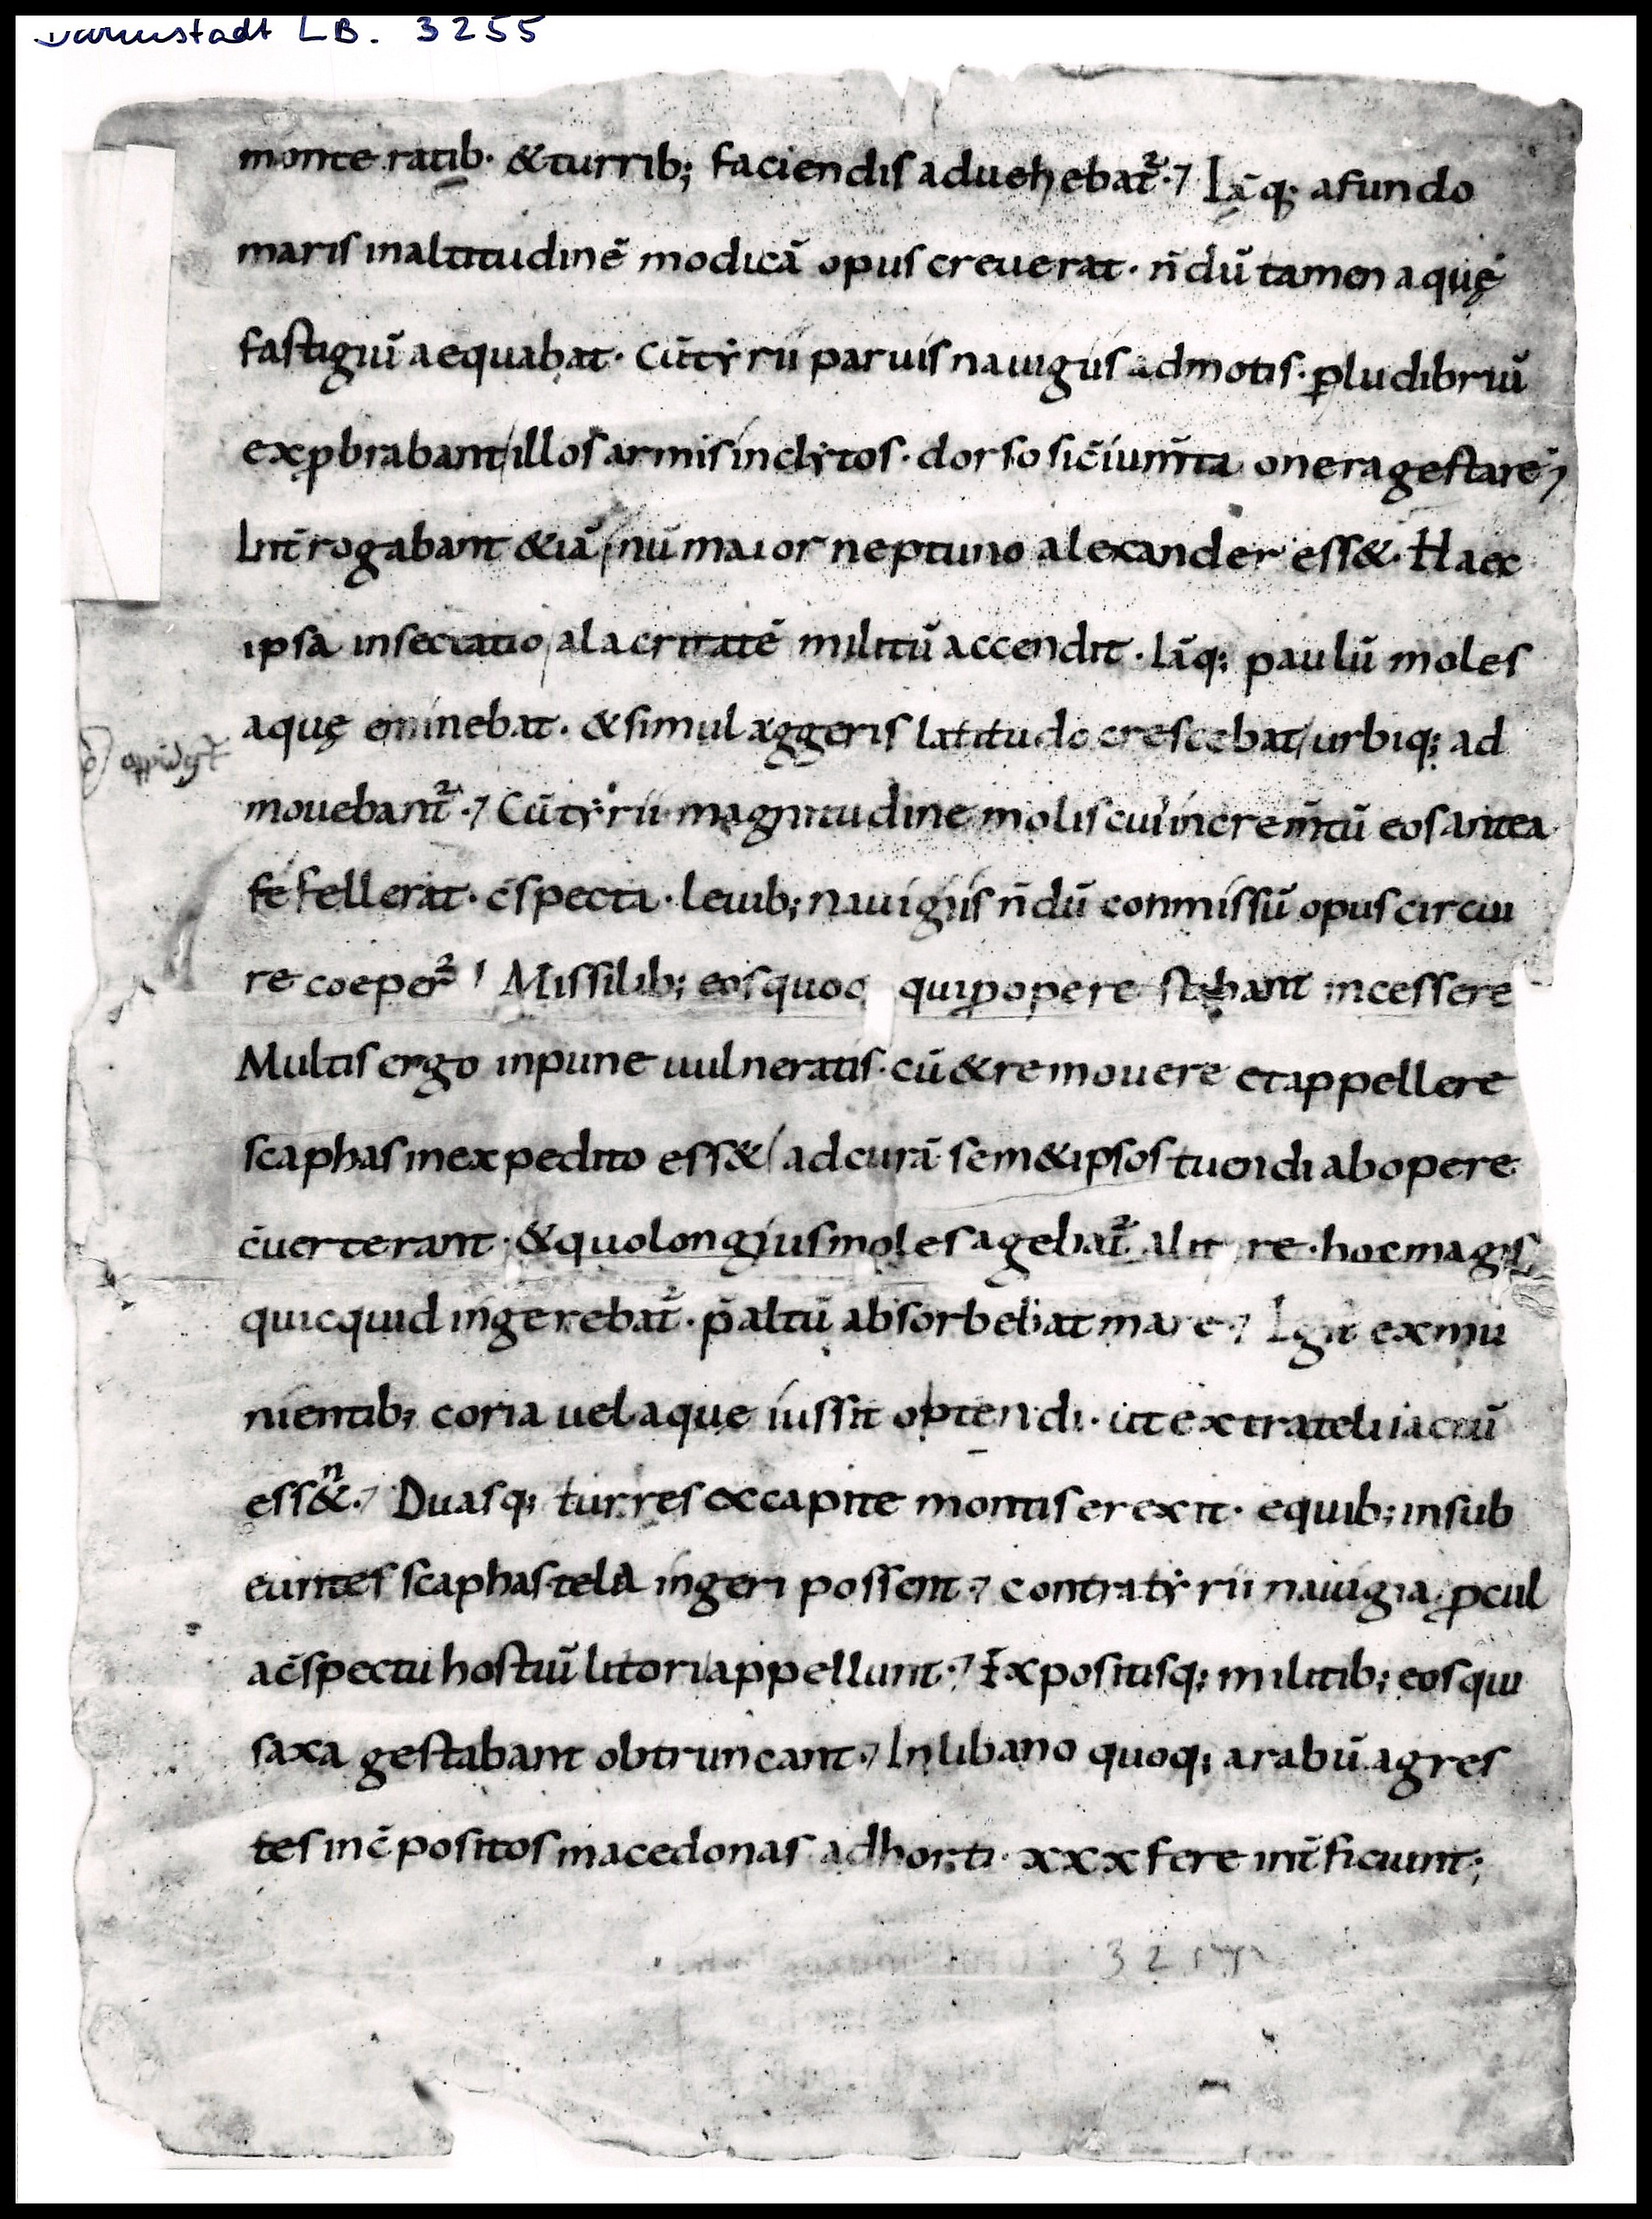 Darmstadt LB. 3255
monte ratib· &turrib; faciendis aduehebat̃·⁊ Iāq· afundo
maris inaltitudinē modicā opus creuerat· n̄dū tamen aquę
fastigiū aequabat· Cūtẏrii paruis nauigiis admotis· ꝑludibriū
exꝓbrabant illos armis inclẏtos· dorso sic̄ium̄ta onera gestare⁊
Int̄rogabant &iā nū maior neptuno alexander ess&· Haec
ipsa insectatio alacritatē militū accendit· Iāq; paulū moles
aquę eminebat· &simul aggeris latitudo crescebat urbiq; ad
mouebant̃·⁊ Cūtẏrii magnitudine moliscui increm̄tū eosantea
fefellerat· c̄specta· leuib; nauigiis n̄dū conmissū opus circui
re coeper̃ Missilib; eosquoq quiꝓopere stabant incessere
Multis ergo inpune uulneratis· cū &remouere etappellere
scaphas inexpedito ess& adcurā sem&ipsos tuendi abopere
c̄uerterant· &quolongius moles agebat̃ alit re· hocmagis
quicquid ingerebat̃· p̄altū absorbebat mare·⁊ Igit̃ exmu
nientib; coria uelaque iussit optendi· utextrateliiactū
ess&ⁿ·⁊ Duasq; turres excapite montis erexit· equib; insub
euntes scaphas tela ingeri possent·⁊ contratẏrii nauigia ꝓcul
ac̄spectu hostiū litori appellunt·⁊ Expositisq; militib; eosqui
saxa gestabant obtruncant·⁊ Inlibano quoq; arabū agres
tes inc̄positos macedonas adhorti· xxx fere int̄ficiunt;